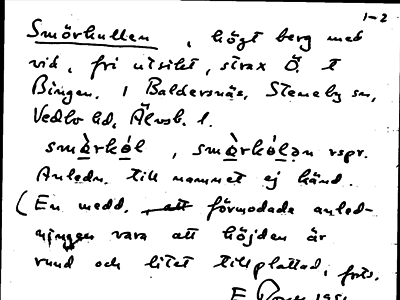 1-2
Smörkullen, högt berg med
vid, fri utsikt, strax Ö. t
Bingen. 1 Baldersnäs, Steneby sn,
Vedbo hd, Älvsb. l.
smö̀rkól, smö̀rkólən rspr.
Anledn. till namnet ej känd.
(En medd. förmodade anled-
ningen vara att höjden är
rund och litet tillplattad, forts.
E.